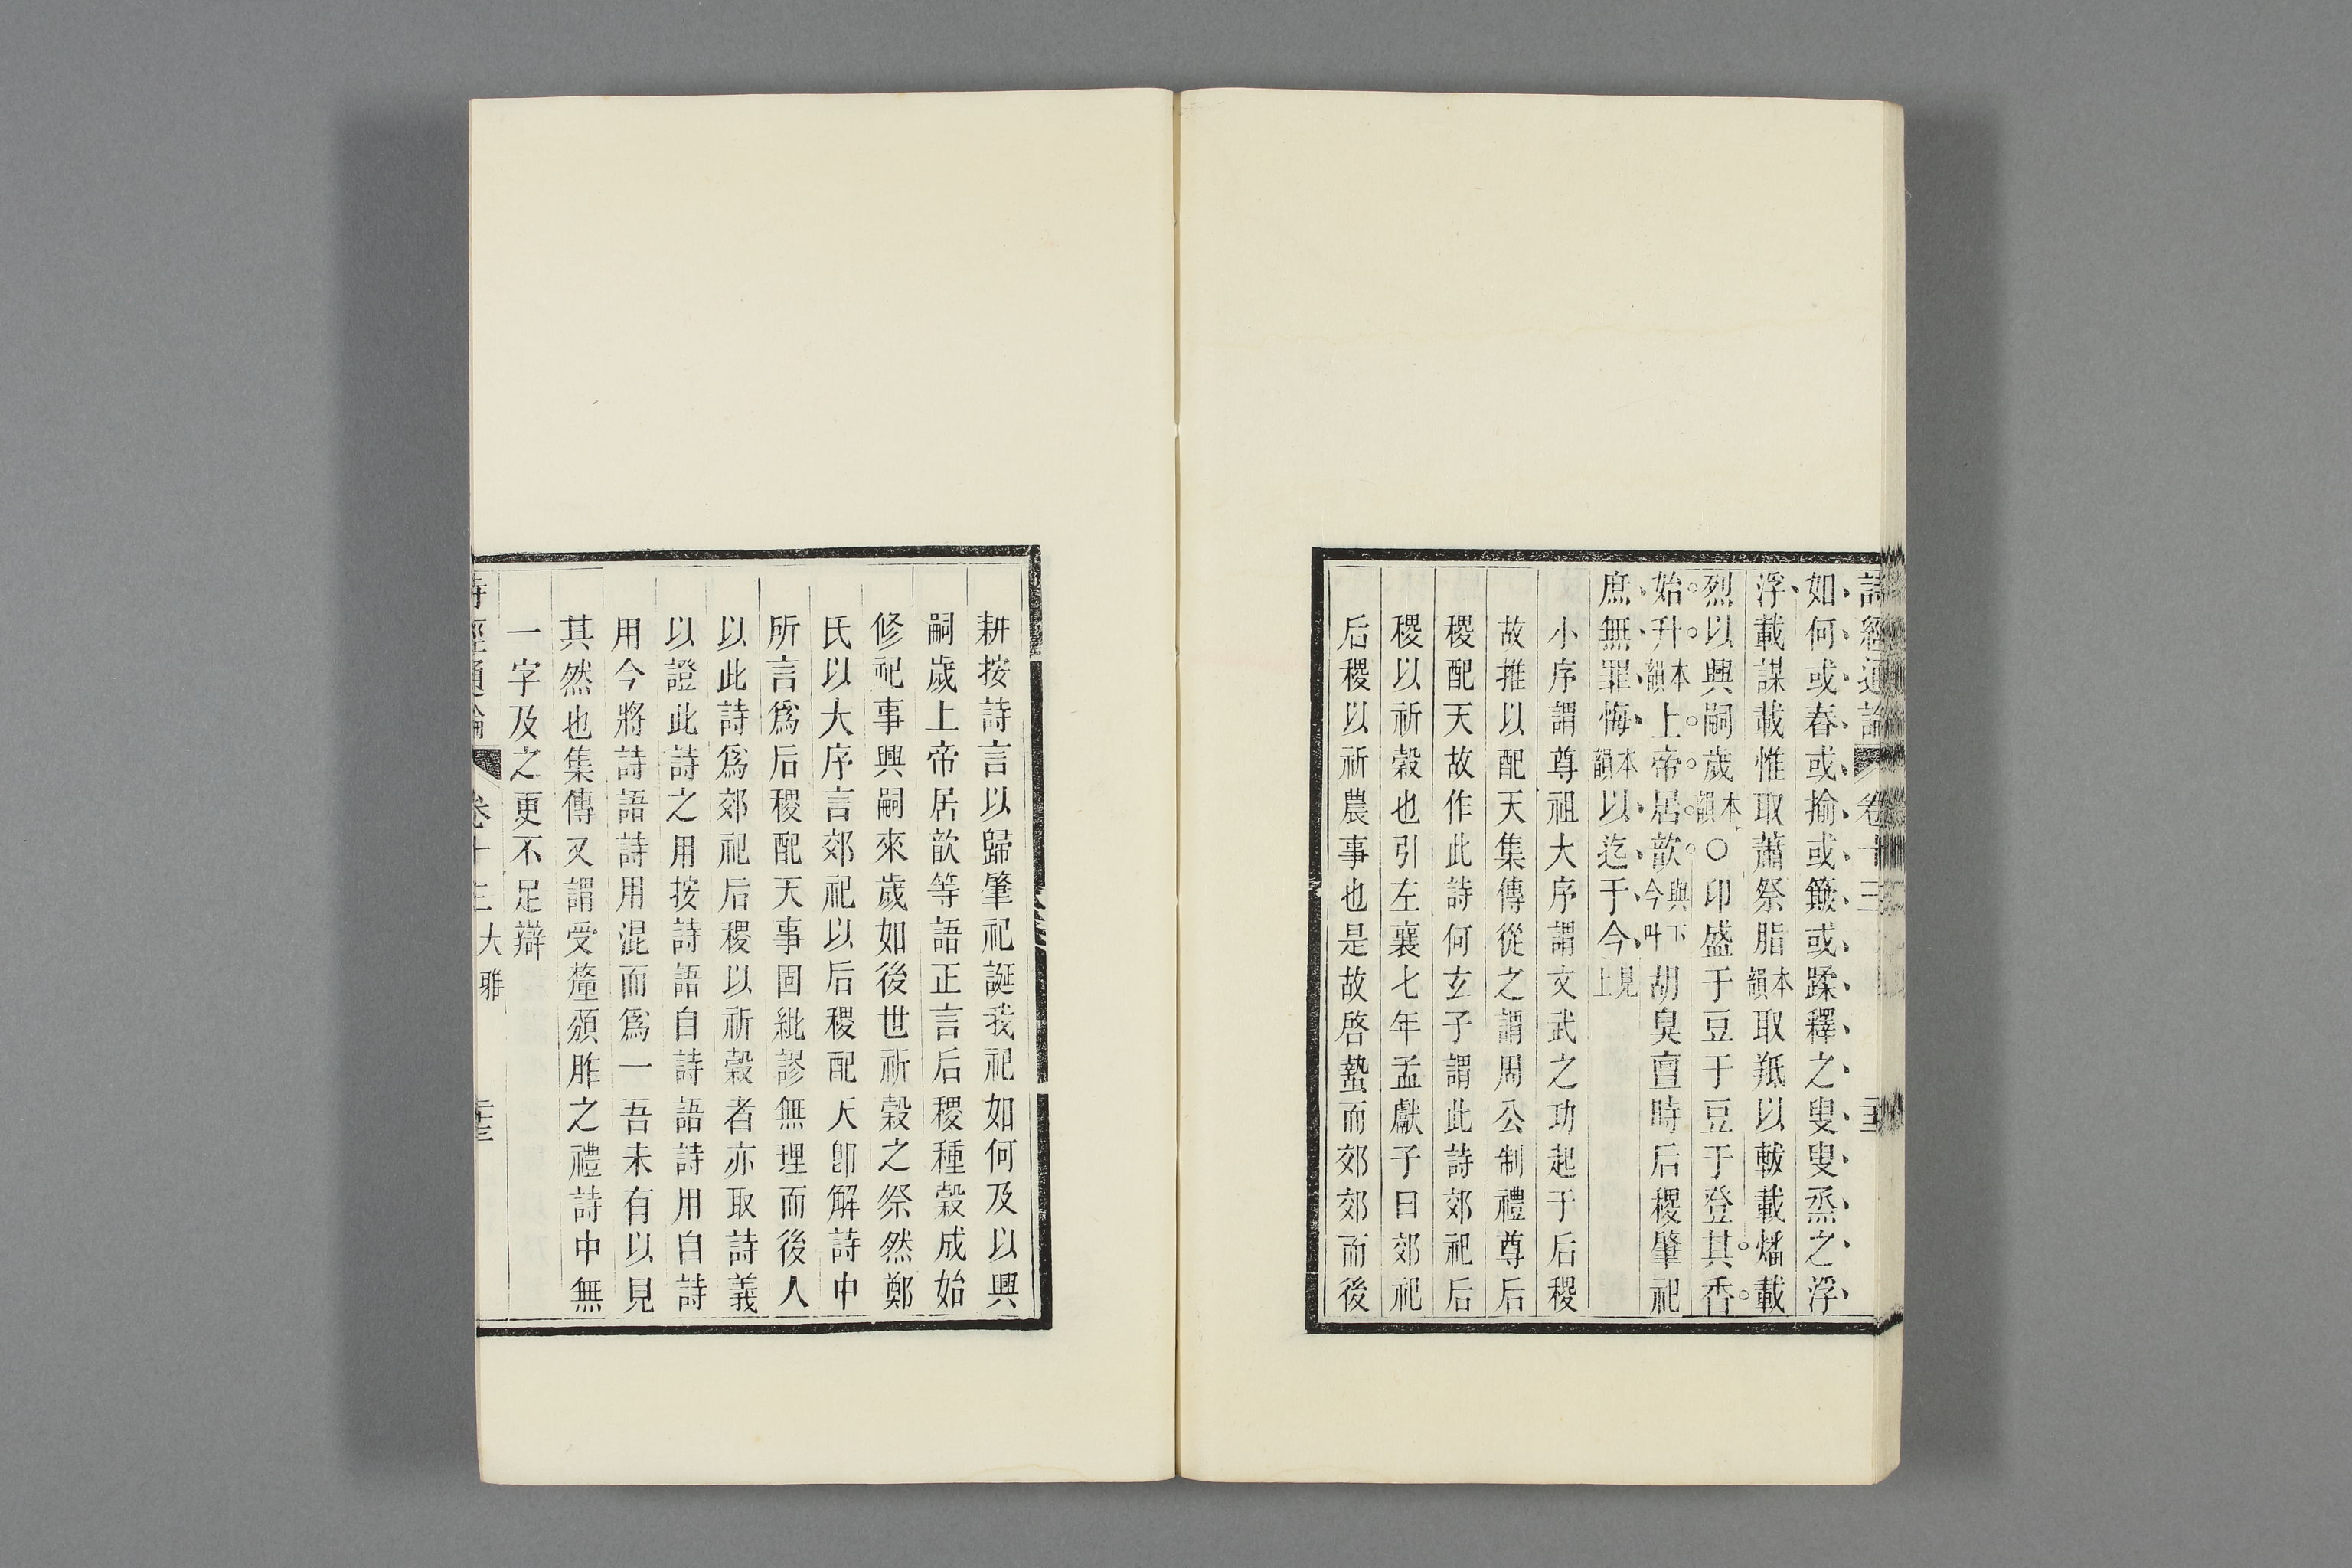 詩經通論 卷十三
如何或舂或揄或簸或蹂釋之叟叟烝之浮
浮載謀載惟取蕭祭脂本韻取羝以軷載燔載
烈以興嗣歲本韻○卬盛于豆于豆于登其香
始升本韻上帝居歆與下今叶胡臭亶時后稷肇祀
庶無罪悔本韻以迄于今見上
小序謂尊祖大序謂文武之功起于后稷
故推以配天集傳從之謂周公制禮尊后
稷配天故作此詩何玄子謂此詩郊祀后
稷以祈穀也引左襄七年孟獻子曰郊祀
后稷以祈農事也是故啓蟄而郊郊而後
耕按詩言以歸肇祀誕我祀如何及以興
嗣歲上帝居歆等語正言后稷種穀成始
修祀事興嗣來歲如後世祈穀之祭然鄭
氏以大序言郊祀以后稷配天卽解詩中
所言爲后稷配天事固紕謬無理而後人
以此詩爲郊祀后稷以祈穀者亦取詩義
以證此詩之用按詩語自詩語詩用自詩
用今將詩語詩用混而爲一吾未有以見
其然也集傳又謂受釐頒胙之禮詩中無
一字及之更不足辯
詩經通論 卷十三大雅